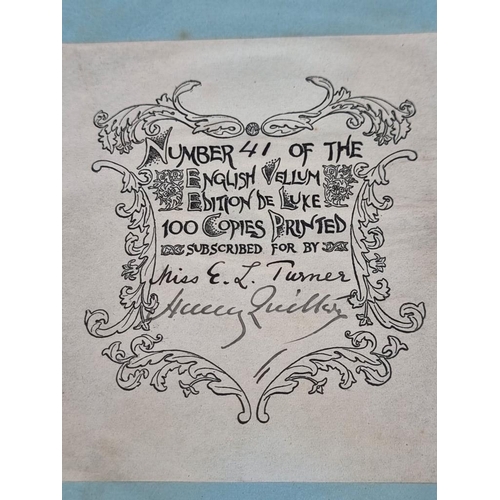 NUMBER 41 OF THE
ENGLISH VELLUM
EDITION DE LUXE
100 COPIES PRINTED
SUBSCRIBED FOR BY
Miss E. L. Turner
Harry Quilter